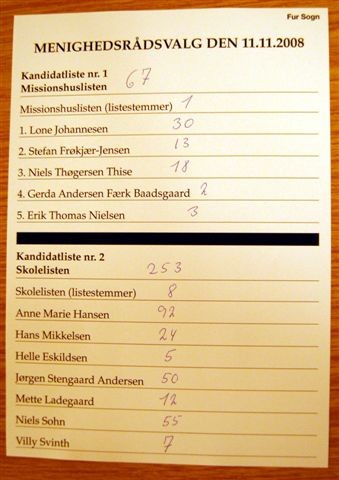 Fur Sogn
MENIGHEDSRÅDSVALG DEN 11.11.2008
Kandidatliste nr. 1
Missionshuslisten 67
Missionshuslisten (listestemmer) 1
1. Lone Johannesen 30
2. Stefan Frøkjær-Jensen 13
3. Niels Thøgersen Thise 18
4. Gerda Andersen Færk Baadsgaard 2
5. Erik Thomas Nielsen 3
Kandidatliste nr. 2
Skolelisten 253
Skolelisten (listestemmer) 8
Anne Marie Hansen 92
Hans Mikkelsen 24
Helle Eskildsen 5
Jørgen Stengaard Andersen 50
Mette Ladegaard 12
Niels Sohn 55
Villy Svinth 7